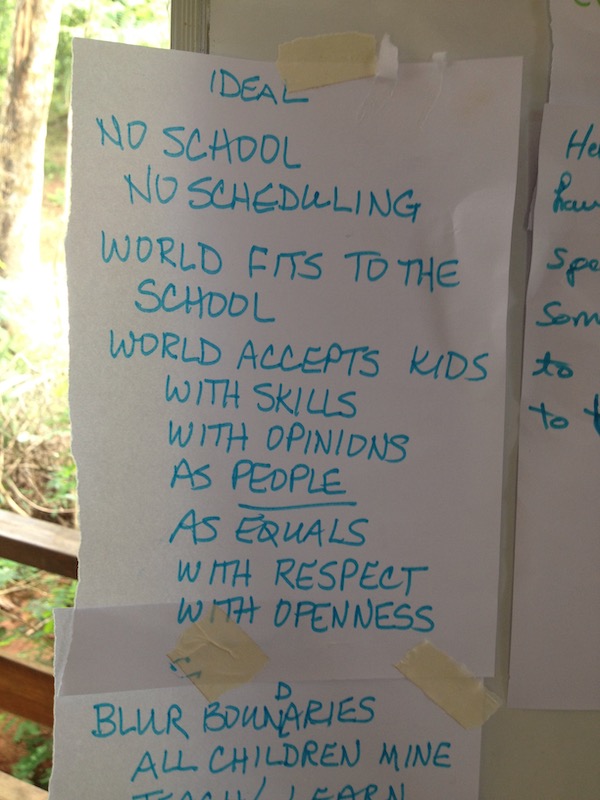 IDEAL
NO SCHOOL
NO SCHEDULING
WORLD FITS TO THE
SCHOOL
WORLD ACCEPTS KIDS
WITH SKILLS
WITH OPINIONS
AS PEOPLE
AS EQUALS
WITH RESPECT
WITH OPENNESS
BLUR BOUNDARIES
ALL CHILDREN MINE
TEACH / LEARN
to
to